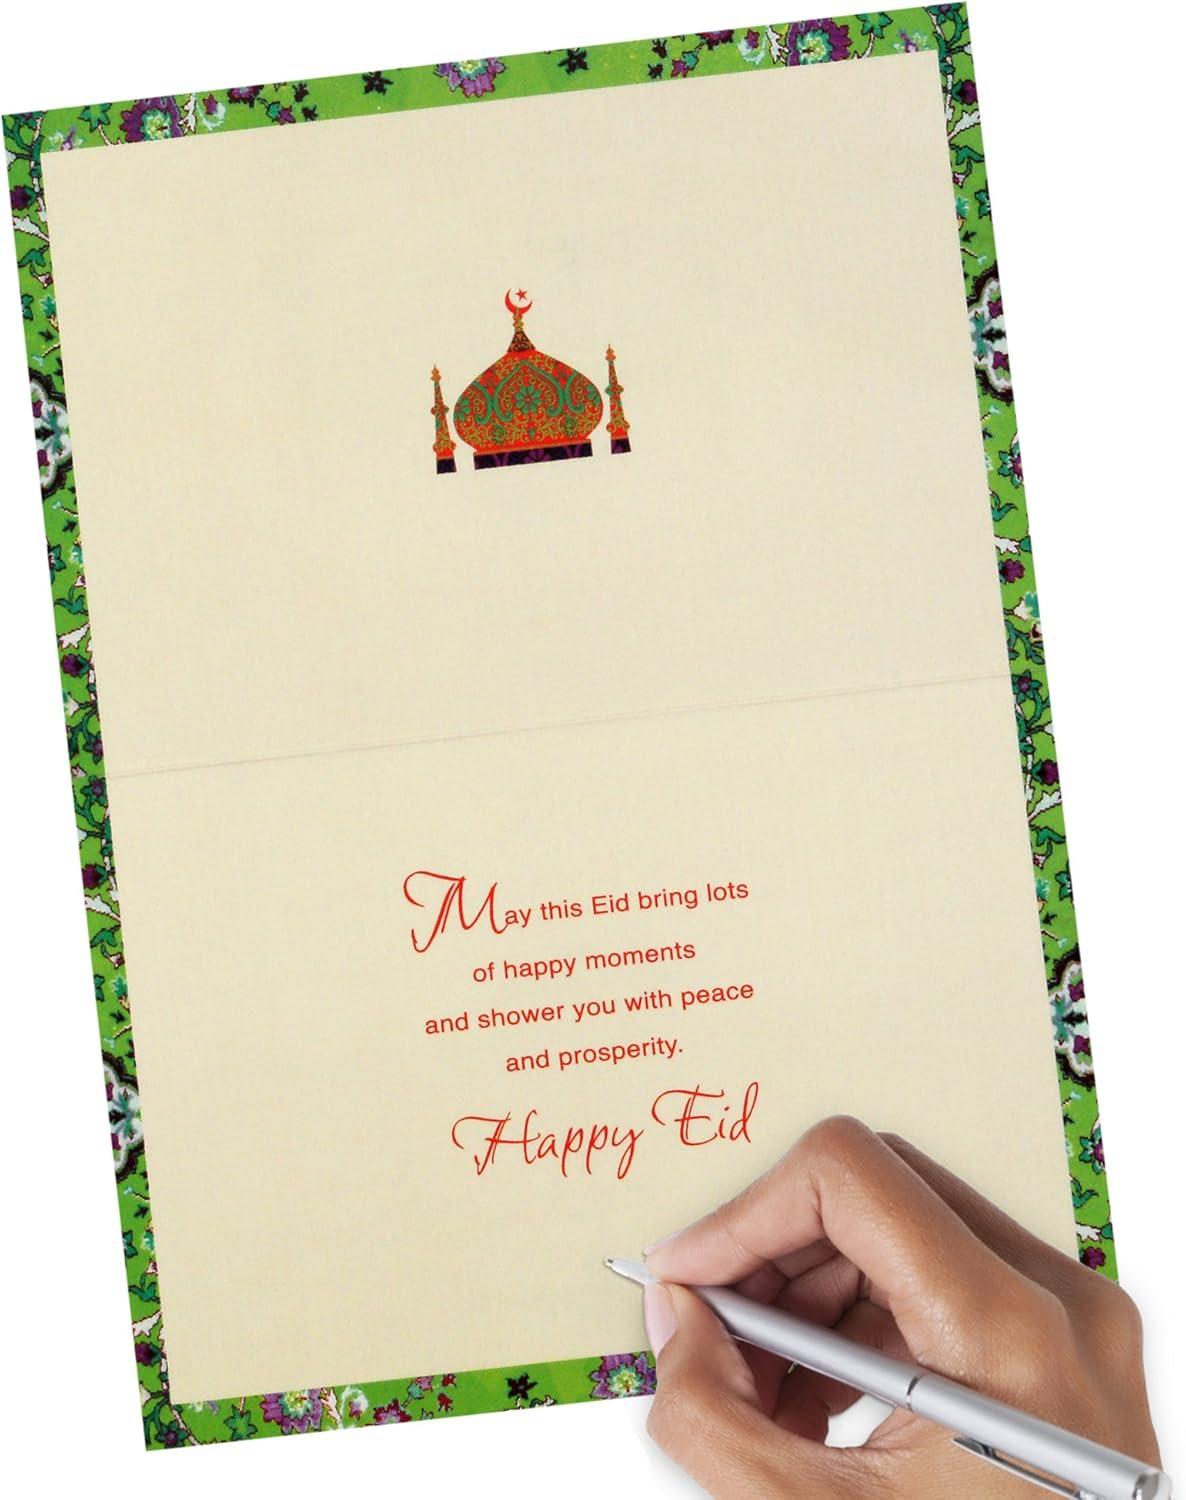 May this Eid bring lots
of happy moments
and shower you with peace
and prosperity.
Happy Eid